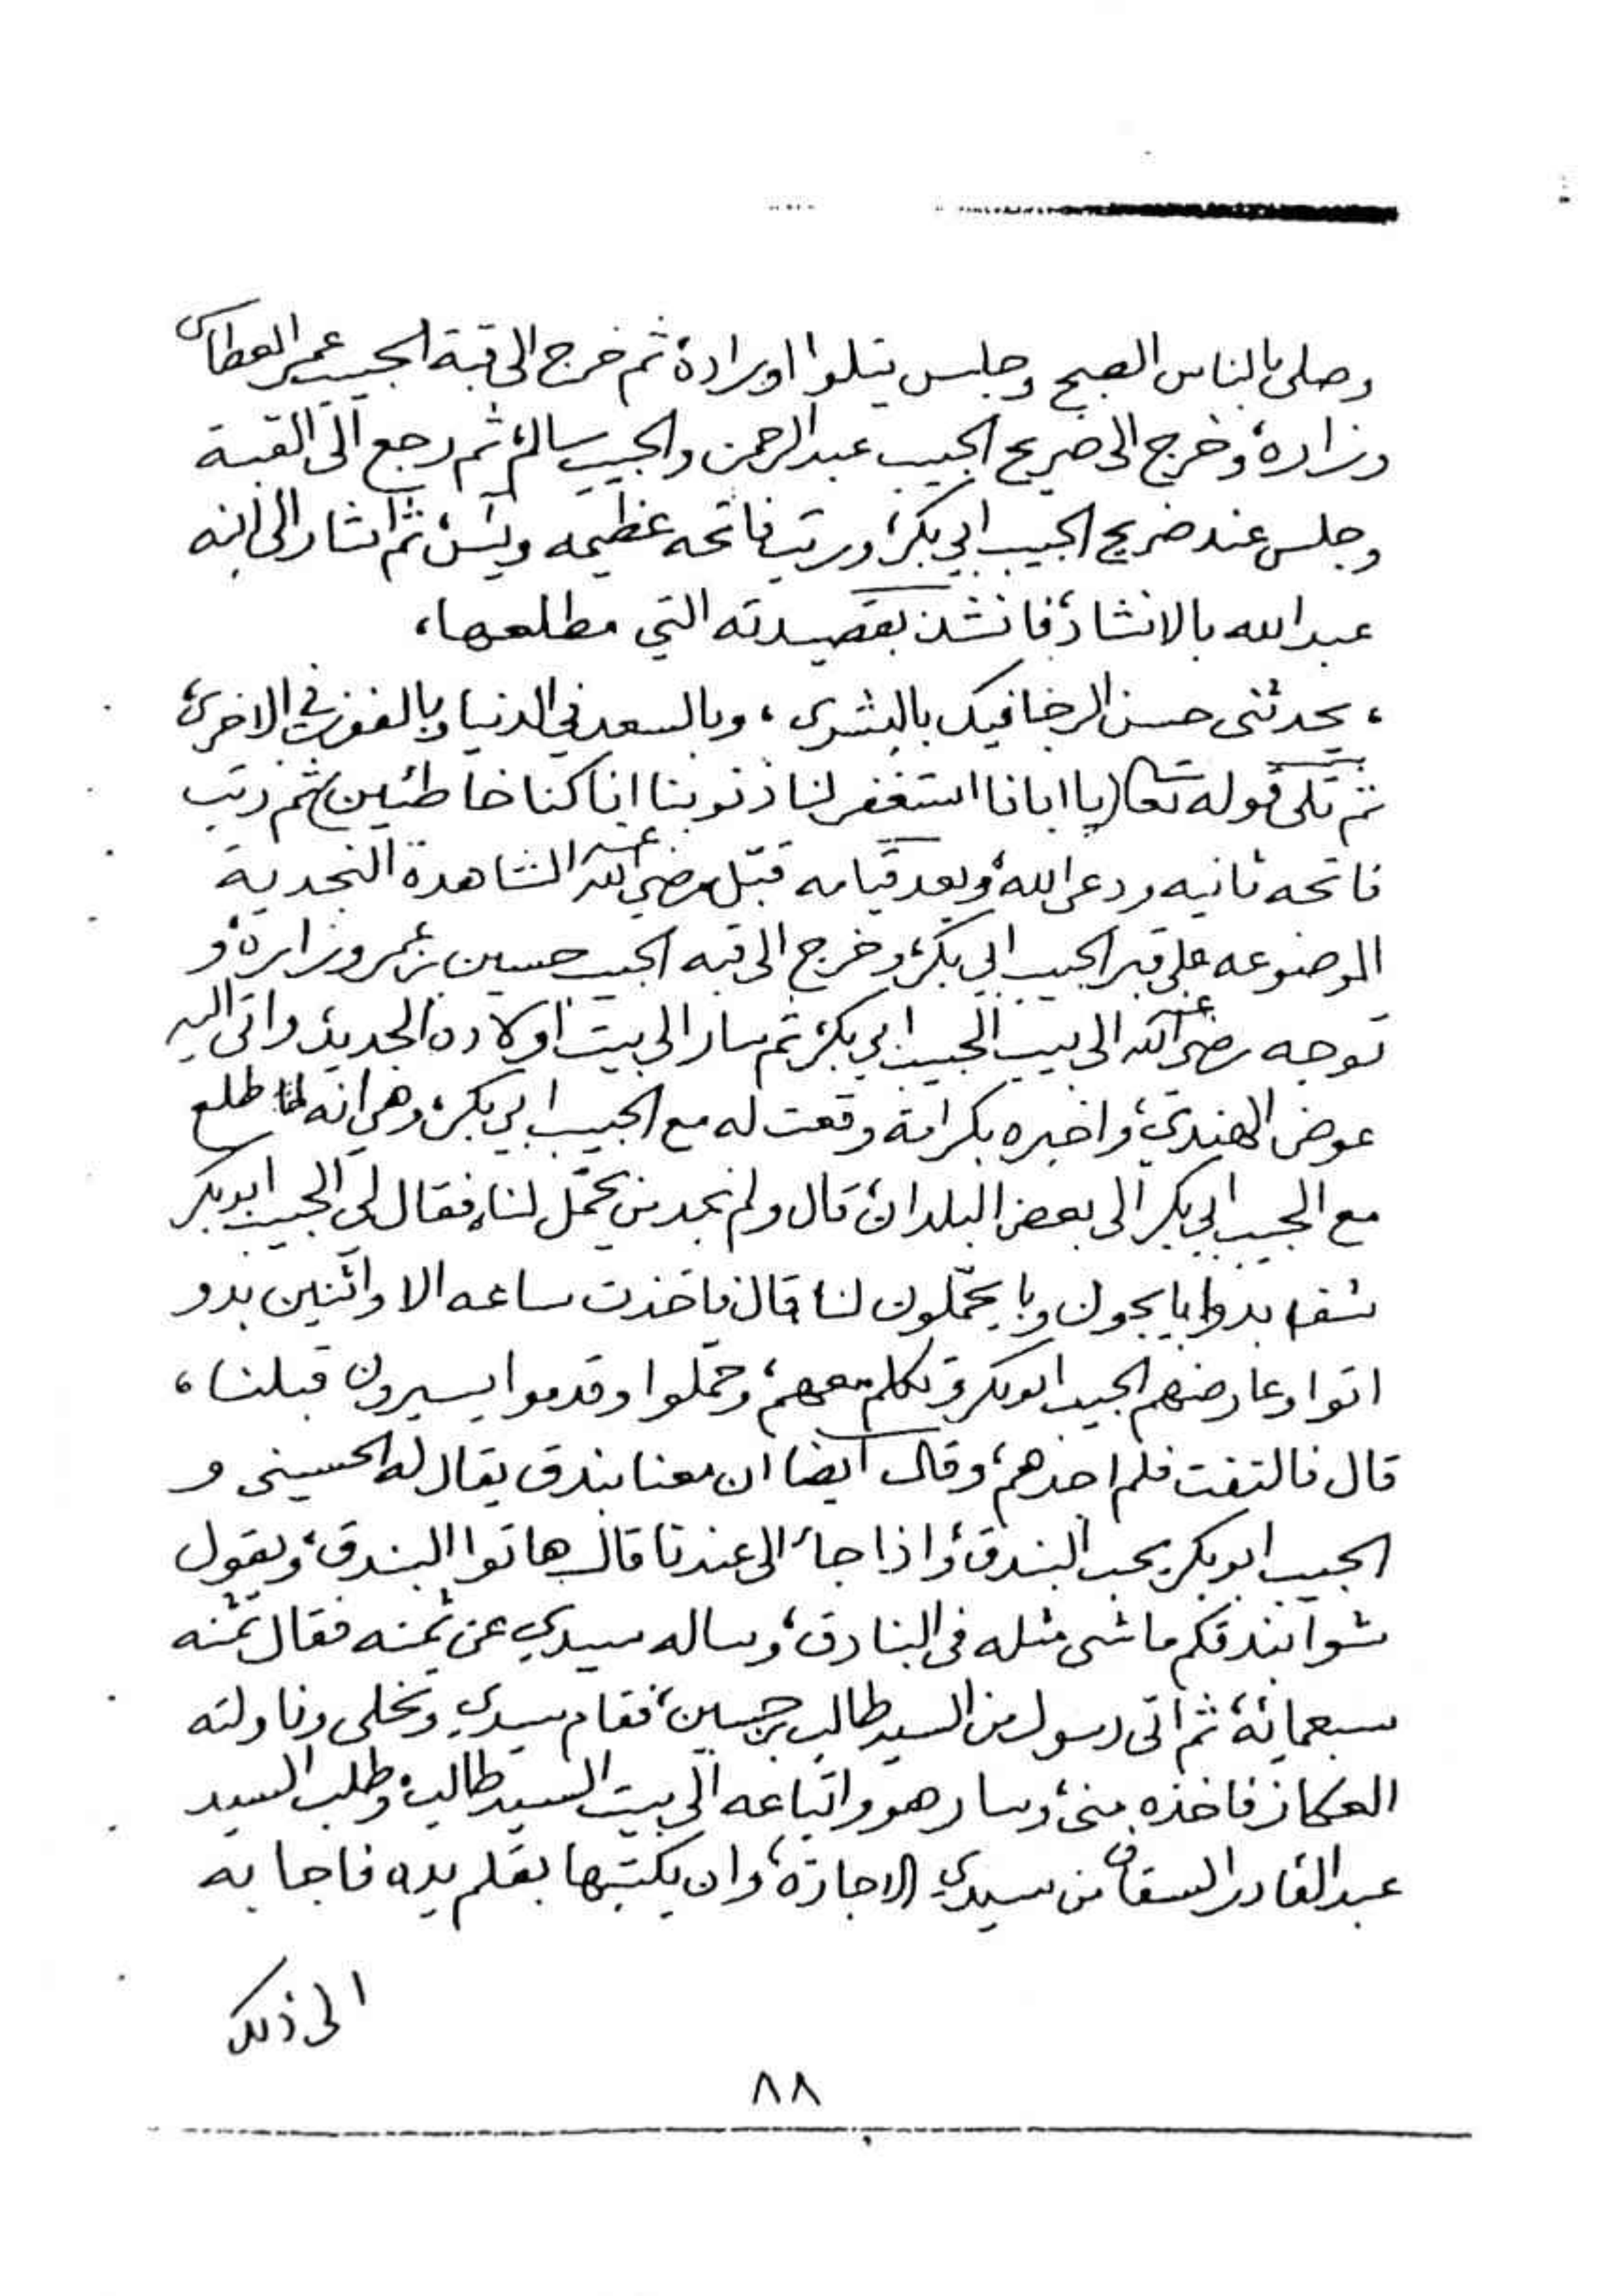 وصلى بالناس الصبح وجلس يتلوا اوراده ثم خرج الى قبة الحبيب عمر العطاس
وزاره، وخرج الى ضريح الحبيب عبدالرحمن والحبيب سالم، ثم رجع الى القبة
وجلس عند ضريح الحبيب ابي بكر، ورتب فاتحه عظيمه ويس، ثم اشار الى ابنه
عبدالله بالانشاد، فانشد بقصيدته التي مطلعها،
، يحدثنى حسن الرجا فيك بالبشرى ، وبالسعد في الدنيا وبالفوز في الاخرى،
ثم تلى قوله تعا (يا ابانا استغفر لنا ذنوبنا انا كنا خاطئين) ثم رتب
فاتحه ثانيه ودعى الله، وبعد قيامه قبّل رضي الله عنه الشاهدة النجدية
الموضوعه على قبر الحبيب ابي بكر، وخرج الى قبه الحبيب حسين بن عمر وزاره، و
توجه رضي الله عنه الى بيت الحبيب ابي بكر، ثم سار الى بيت اولاده الجديد، واتى اليه
عوض الهندي، واخبره بكرامة وقعت له مع الحبيب ابي بكر، وهي انه لما طلع
مع الحبيب ابي بكر الى بعض البلدان، قال ولم نجد من يحمّل لنا، فقال لي الحبيب ابوبكر
شف بدوا با يجون وبا يحمّلون لنا، قال فاخذت ساعه الا واثنين بدو
اتوا وعارضهم الحبيب ابوبكر وتكلم معهم، وحملوا وقدموا يسيرون قبلنا،
قال فالتفت فلم اجدهم، وقال ايضا ان معنا بندق يقال له الحسيني و
الحبيب ابوبكر يحب البندق، واذا جاء الى عندنا قال هاتوا البندق، ويقول
شوا بندقكم ماشى مثله فى البنادق، وساله سيدي عن ثمنه فقال ثمنه
سبعمائة، ثم اتى رسول من السيد طالب بن حسين، فقام سيدي وتخلى وناولته
العكاز فاخذه منى، وسار هو واتباعه الى بيت السيد طالب، وطلب السيد
عبدالقادر السقاف من سيدي الاجازة، وان يكتبها بقلم يده فاجابه
الى ذلك
٨٨